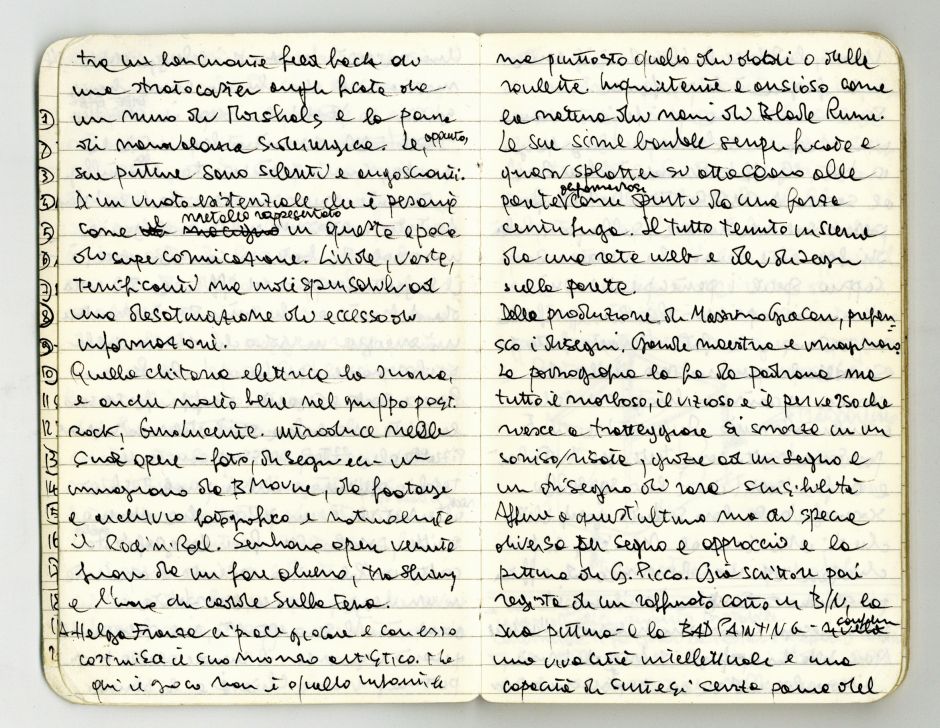 tra un lancinante feed back di
una stratocaster amplificata da
un muro di Marshals e la paura
di mancanza Le, appunto,
sue pitture sono silenti e angoscianti.
D'un vuoto esistenziale che è pesante
come il metallo rappresentato in questa epoca
di super comunicazione. Livide, vaste,
terrificanti ma indispensabili ad
una destinazione di eccesso di
informazioni.
Quella chitarra elettrica la suona,
e anche molto bene nel gruppo post
rock, introduce nelle
sue opere – foto, disegni ecc – un
immaginario da B Movie, da footage
e archivio fotografico e naturalmente
il Rock'n'Roll. Sembrano opere venute
fuori da un film, tra Shining
e l'uomo che cadde sulla terra.
A Helga Franza ci piace giocare e con esso
costruisce il suo mondo artistico. Ma
qui il gioco non è quello infantile
ma piuttosto quello dei dadi o della
roulette. Inquietante e ansioso come
la mattina dei nani di Blade Runner.
Le sue scimmie bambole semplificate e
quasi splatter si attaccano alle
pareti come spinti da una forza
centrifuga. Il tutto tenuto insieme
da una rete web e dai disegni
sulla parete.
Della produzione di Massimo Giacon, preferi-
sco i disegni. Grande maestria e immaginario.
La pornografia la fa da padrona ma
tutto il morboso, il vizioso e il perverso che
riesce a tratteggiare si smorza in un
sorriso/risata, grazie ad un segno e
un disegno di rara sensibilità
Affine a quest'ultimo ma di specie
diversa per segno e approccio è la
pittura di G. Picco. Già scrittore poi
regista di un raffinato corto in B/N, la
sua pittura – è la BAD PAINTING – conferma
una vivacità intellettuale e una
capacità di sintesi senza paura del